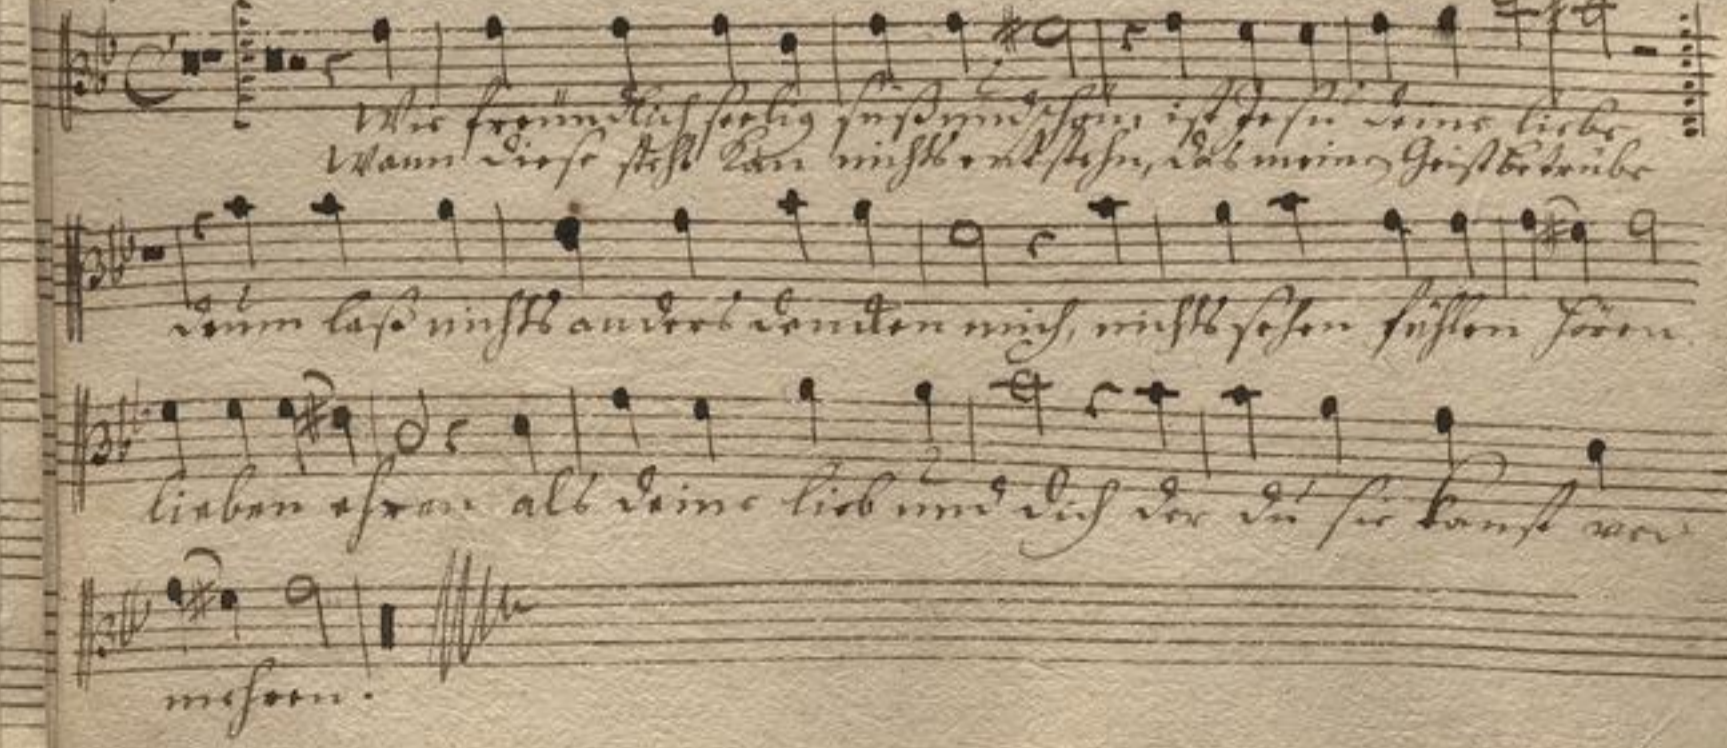 Wie freündlich seelig süß und schön ist Jesu deine liebe
Wann diese steht kan nichts entstehn, das meinen Geist betrübe
drum laß nichts anders dencken mich, nichts sehen fühlen hören
lieben ehren als deine lieb und dich der du sie kanst ver
mehren.